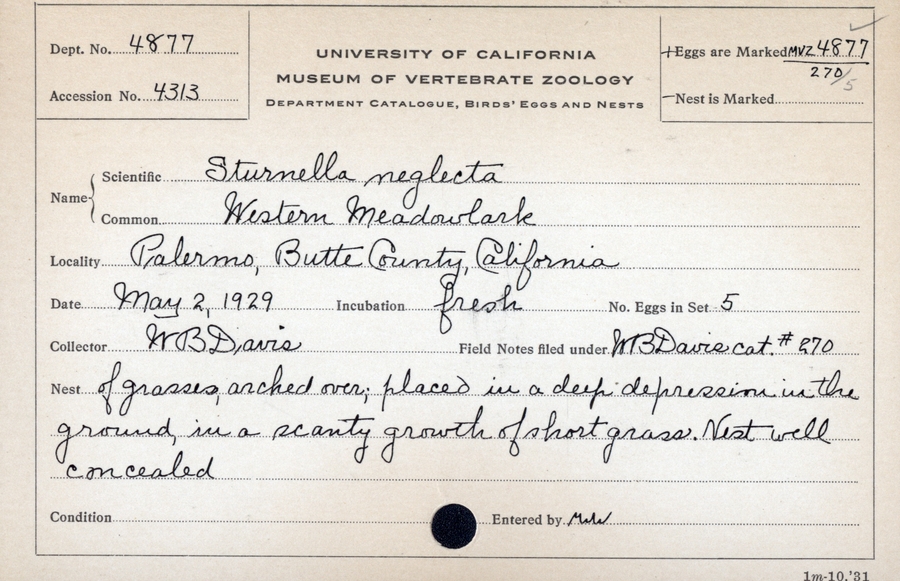 Dept. No. 4877
Accession No. 4313
UNIVERSITY OF CALIFORNIA
MUSEUM OF VERTEBRATE ZOOLOGY
DEPARTMENT CATALOGUE, BIRDS' EGGS AND NESTS
+Eggs are Marked MVZ 4877
270/5
—Nest is Marked
Name
Scientific Sturnella neglecta
Common Western Meadowlark
Locality Palermo, Butte County, California
Date May 2, 1929 Incubation fresh No. Eggs in Set 5
Collector WB Davis Field Notes filed under WB Davis cat. # 270
Nest of grasses, arched over; placed in a deep depression in the
ground, in a scanty growth of short grass. Nest well
concealed
Condition Entered by
1m-10,'31